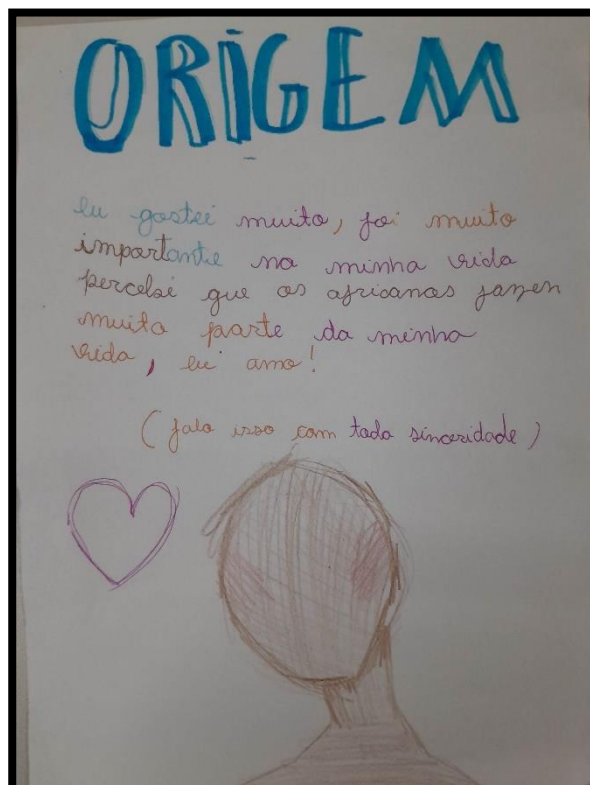 ORIGEM
eu gostei muito, foi muito
importante na minha vida
percebi que os africanos fazem
muito parte da minha
vida, eu amo!
(falo isso com toda sinceridade)